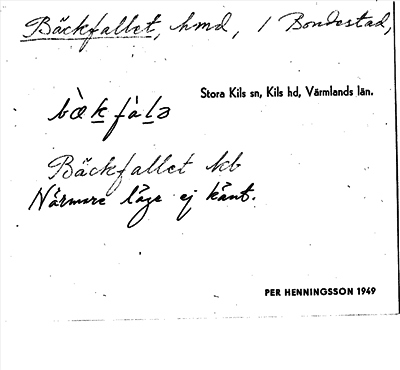 Bäckfallet, hmd, / Bondestad,
Stora Kils sn, Kils hd, Värmlands län.
bæ̀kfàlə
Bäckfallet kb
Närmare läge ej känt.
PER HENNINGSSON 1949